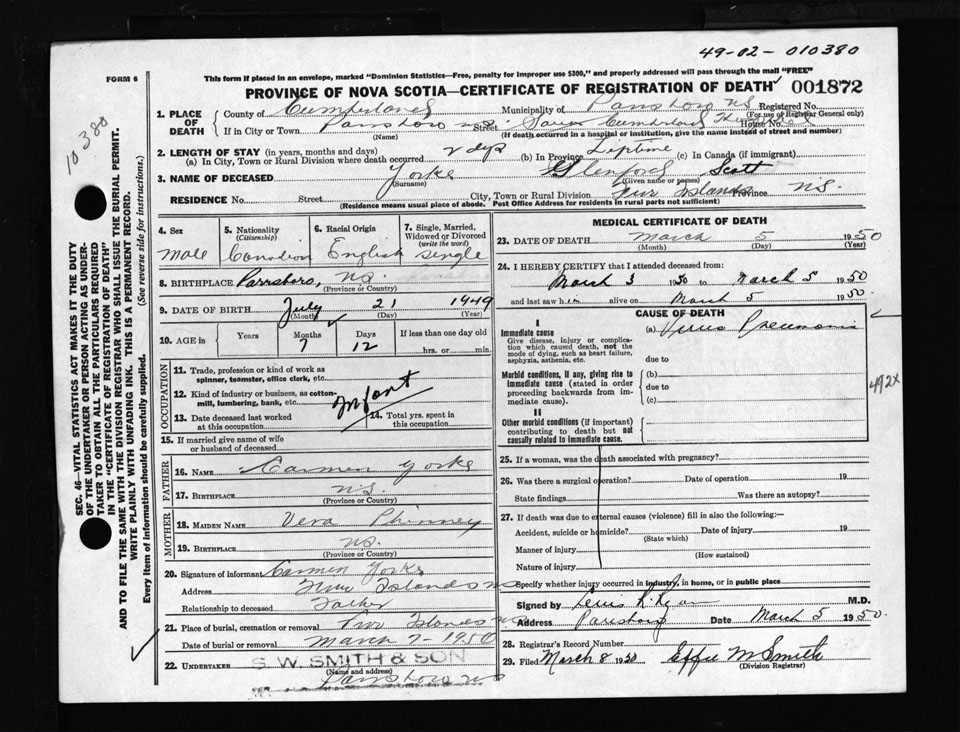 49-02-010380
FORM 6
This form if placed in an envelope, marked "Dominion Statistics—Free, penalty for improper use $300," and properly addressed will pass through the mail "FREE"
PROVINCE OF NOVA SCOTIA—CERTIFICATE OF REGISTRATION OF DEATH
001872
10380
SEC. 46—VITAL STATISTICS ACT MAKES IT THE DUTY
OF THE UNDERTAKER OR PERSON ACTING AS UNDER-
TAKER TO OBTAIN ALL THE PARTICULARS REQUIRED
IN THE "CERTIFICATE OF REGISTRATION OF DEATH"
AND TO FILE THE SAME WITH THE DIVISION REGISTRAR WHO SHALL ISSUE THE BURIAL PERMIT.
WRITE PLAINLY WITH UNFADING INK. THIS IS A PERMANENT RECORD.
Every item of information should be carefully supplied. (See reverse side for instructions.)
1. PLACE OF DEATH
County of Cumberland Municipality of Parrsboro NS Registered No.
(For use of Registrar General only)
If in City or Town Parrsboro NS Street House No.
(Name) (If death occurred in a hospital or institution, give the name instead of street and number)
2. LENGTH OF STAY (in years, months and days)
(a) In City, Town or Rural Division where death occurred 2 dys (b) In Province Lifetime (c) In Canada (if immigrant)
3. NAME OF DECEASED Yorke Glenford Scott
(Surname) (Given name or names)
RESIDENCE No. Street City, Town or Rural Division Five Islands Province N.S.
(Residence means usual place of abode. Post Office Address for residents in rural parts not sufficient)
4. Sex Male
5. Nationality (Citizenship) Canadian
6. Racial Origin English
7. Single, Married, Widowed or Divorced (write the word) Single
8. BIRTHPLACE Parrsboro, N.S.
(Province or Country)
9. DATE OF BIRTH July 21 1949
(Month) (Day) (Year)
10. AGE in Years Months 7 Days 12 If less than one day old
hrs. or min.
OCCUPATION
11. Trade, profession or kind of work as spinner, teamster, office clerk, etc.
12. Kind of industry or business, as cotton-mill, lumbering, bank, etc.
Infant
13. Date deceased last worked at this occupation
14. Total yrs. spent in this occupation
15. If married give name of wife or husband of deceased
FATHER
16. NAME Carmen Yorke
17. BIRTHPLACE N.S.
(Province or Country)
MOTHER
18. MAIDEN NAME Vera Phinney
19. BIRTHPLACE N.S.
(Province or Country)
20. Signature of informant Carmen Yorke
Address Five Islands NS
Relationship to deceased Father
21. Place of burial, cremation or removal Five Islands NS
Date of burial or removal March 7 - 1950
22. UNDERTAKER S. W. SMITH & SON
(Name and address)
Parrsboro NS
MEDICAL CERTIFICATE OF DEATH
23. DATE OF DEATH March 5 1950
(Month) (Day) (Year)
24. I HEREBY CERTIFY that I attended deceased from:
March 3 1950 to March 5 1950
and last saw him alive on March 5 1950.
CAUSE OF DEATH
I
Immediate cause (a) Virus Pneumonia
Give disease, injury or complication which caused death, not the mode of dying, such as heart failure, asphyxia, asthenia, etc.
due to
Morbid conditions, if any, giving rise to immediate cause (stated in order proceeding backwards from immediate cause).
(b)
due to
(c)
492X
II
Other morbid conditions (if important) contributing to death but not causally related to immediate cause.
25. If a woman, was the death associated with pregnancy?
26. Was there a surgical operation? Date of operation 19
State findings Was there an autopsy?
27. If death was due to external causes (violence) fill in also the following:—
Accident, suicide or homicide? Date of injury 19
(State which)
Manner of injury
(How sustained)
Nature of injury
Specify whether injury occurred in industry, in home, or in public place
Signed by M.D.
Address Parrsboro Date March 5 1950.
28. Registrar's Record Number
29. Filed March 8 1950 Effie M Smith
(Division Registrar)